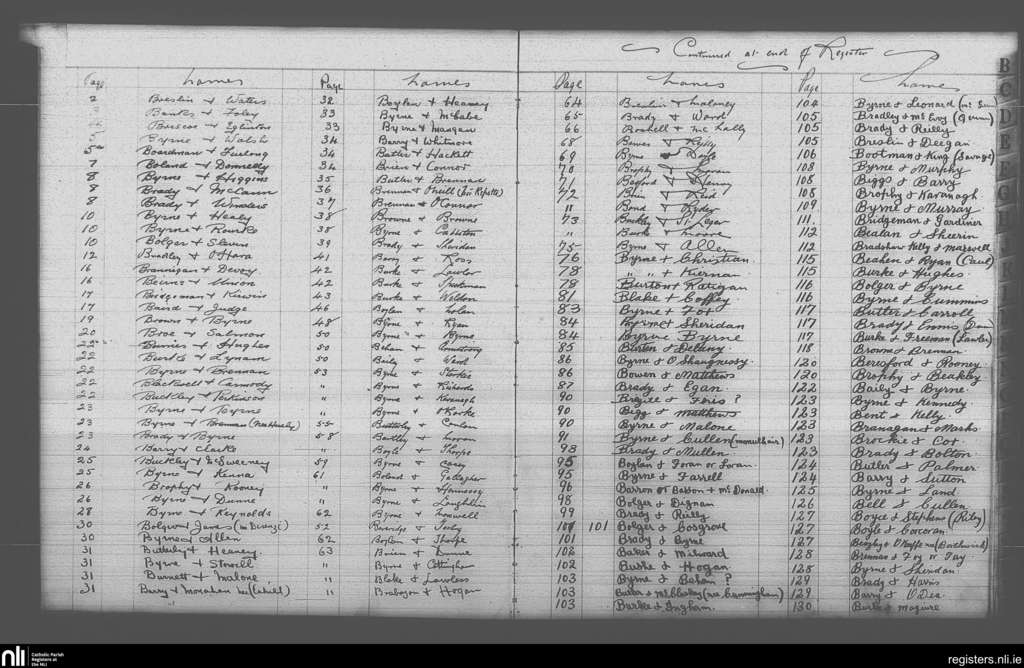 Continued at end of Register
Page Names Page Names Page Names Page Names
2 Breslin & Waters
3 Banks & Foley
Briscoe & Eglinton
5 Byrne & Walsh
Boardman & Furlong
7 Boland & Donnelly
8 Byrne & Higgins
8 Brady & McCann
8 Brady & Winders
10 Byrne & Healy
10 Byrne & Rourke
10 Bolger & Slevin
12 Buckley & O'Hara
16 Brannigan & Devoy
16 Beirne &
17 Bridgeman & Kirwin
17 Baird & Judge
19 Brown & Byrne
20 Broe & Salmon
22 Burnies & Hughes
22 Burke & Lynam
22 Byrne & Brennan
22 Blackwell & Carmody
22 Buckley & Parkinson
23 Byrne & Byrne
23 Byrne & Brennan
23 Brady & Byrne
24 Berry & Clarke
25 Buckley & McSweeney
25 Byrne & Kenna
26 Brophy & Rooney
26 Byrne & Dunne
28 Byrne & Reynolds
30 Bolger & James
30 Byrne & Allen
31 Butterly & Heaney
31 Byrne & Stowell
31 Burnett & Malone
31 Barry & Monahan
32 Boylan & Heaney
33 Byrne & McCabe
33 Byrne & Mangan
34 Barry & Whitmore
34 Butler & Hackett
34 Brien & Connor
35 Butler & Brennan
36 Brennan & O'Neill
37 Brennan & O'Connor
38 Browne & Browne
38 Byrne &
39 Brady & Sheridan
41 Berry & Ross
42 Burke & Lawlor
42 Burke &
43 Burke & Weldon
46 Boylan & Nolan
48 Byrne & Ryan
50 Byrne & Byrne
50 Behan & Armstrong
50 Baily & Ward
53 Byrne &
" Byrne & Richards
" Byrne & Kavanagh
" Byrne & O'Rorke
55 Butterly & Conlan
58 Bentley &
" Boyle & Thorpe
59 Byrne & Casey
61 Boland & Gallagher
" Byrne & Hennessy
" Byrne & Laughlin
62 Byrne &
52 Beveridge &
62 Boylan & Thorpe
63 Brien & Dunne
" Byrne & Cottingham
" Blake & Lawless
" Brabazon & Hogan
64 Breslin & Maloney
65 Brady & Ward
66 Boshell & McNally
68 Bowes & Kelly
69 Byrne & Doyle
70 Brophy &
71 Bayford &
72 Brien & Reid
" Bond & Ryder
73 Buckley & St. Leger
" Burke & Moore
75 Byrne & Allen
76 Byrne & Christian
78 " " & Kiernan
78 Burton & Ratigan
81 Blake & Coffey
83 Byrne & Foy
84 Byrne & Sheridan
84 Byrne Byrne
85 Burton & Delany
86 Byrne & O'Shaugnessy
86 Bowen & Matthews
87 Brady & Egan
90 &  ?
90 Bigg & Matthews
90 Byrne & Malone
91 Byrne & Cullen
93 Brady & Mullen
95 Boylan & Foran or Loran
95 Byrne & Farrell
96 Barron or Basson & McDonald
98 Bolger & Dignan
99 Brady & Reilly
101 101 Bolger & Cosgrove
101 Brady & Byrne
102 Baker & Milward
102 Burke & Hogan
103 Byrne & Behan ?
103 Butler & McCluskey (nee Cunningham)
103 Burke & Ingham.
104 Byrne & Leonard
105 Bradley & McEvoy
105 Brady & Reilly
105 Breslin & Deegan
106 Bootman & King (Savage)
108 Byrne & Murphy
108 Biggs & Barry
108 Brophy & Kavanagh
109 Byrne & Murray
111. Bridgeman & Gardiner
112 Beatan & Sheerin
112 Bradshaw Kelly & Maxwell
115 Beahen & Ryan (Caul)
115 Burke & Hughes
116 Bolger & Byrne
116 Byrne & Cummins
117 Butler & Carroll
117 Brady & Ennis
117 Burke & Freeman (Lawlor)
118 Browne & Brennan
120 Beresford & Rooney
120 Brophy & Beakley
122 Baily & Byrne
123 Byrne & Kennedy
123 Bent & Kelly
123 Branagan & Marks
123 Brookie & Cox
123 Brady & Bolton
124 Butler & Palmer
124 Barry & Sutton
125 Byrne & Land
126 Bell & Cullen
127 Boyce & Stephens (Riley)
127 Boyle & Corcoran
127 Brophy & O'Keeffe
128 Brennan & Foy or Fay
128 Byrne & Sheridan
129 Brady & Harris
129 Barry & O'Dea
130 Burke & Maguire
B
C
D
E
nli Catholic Parish
Registers at
the NLI
registers.nli.ie